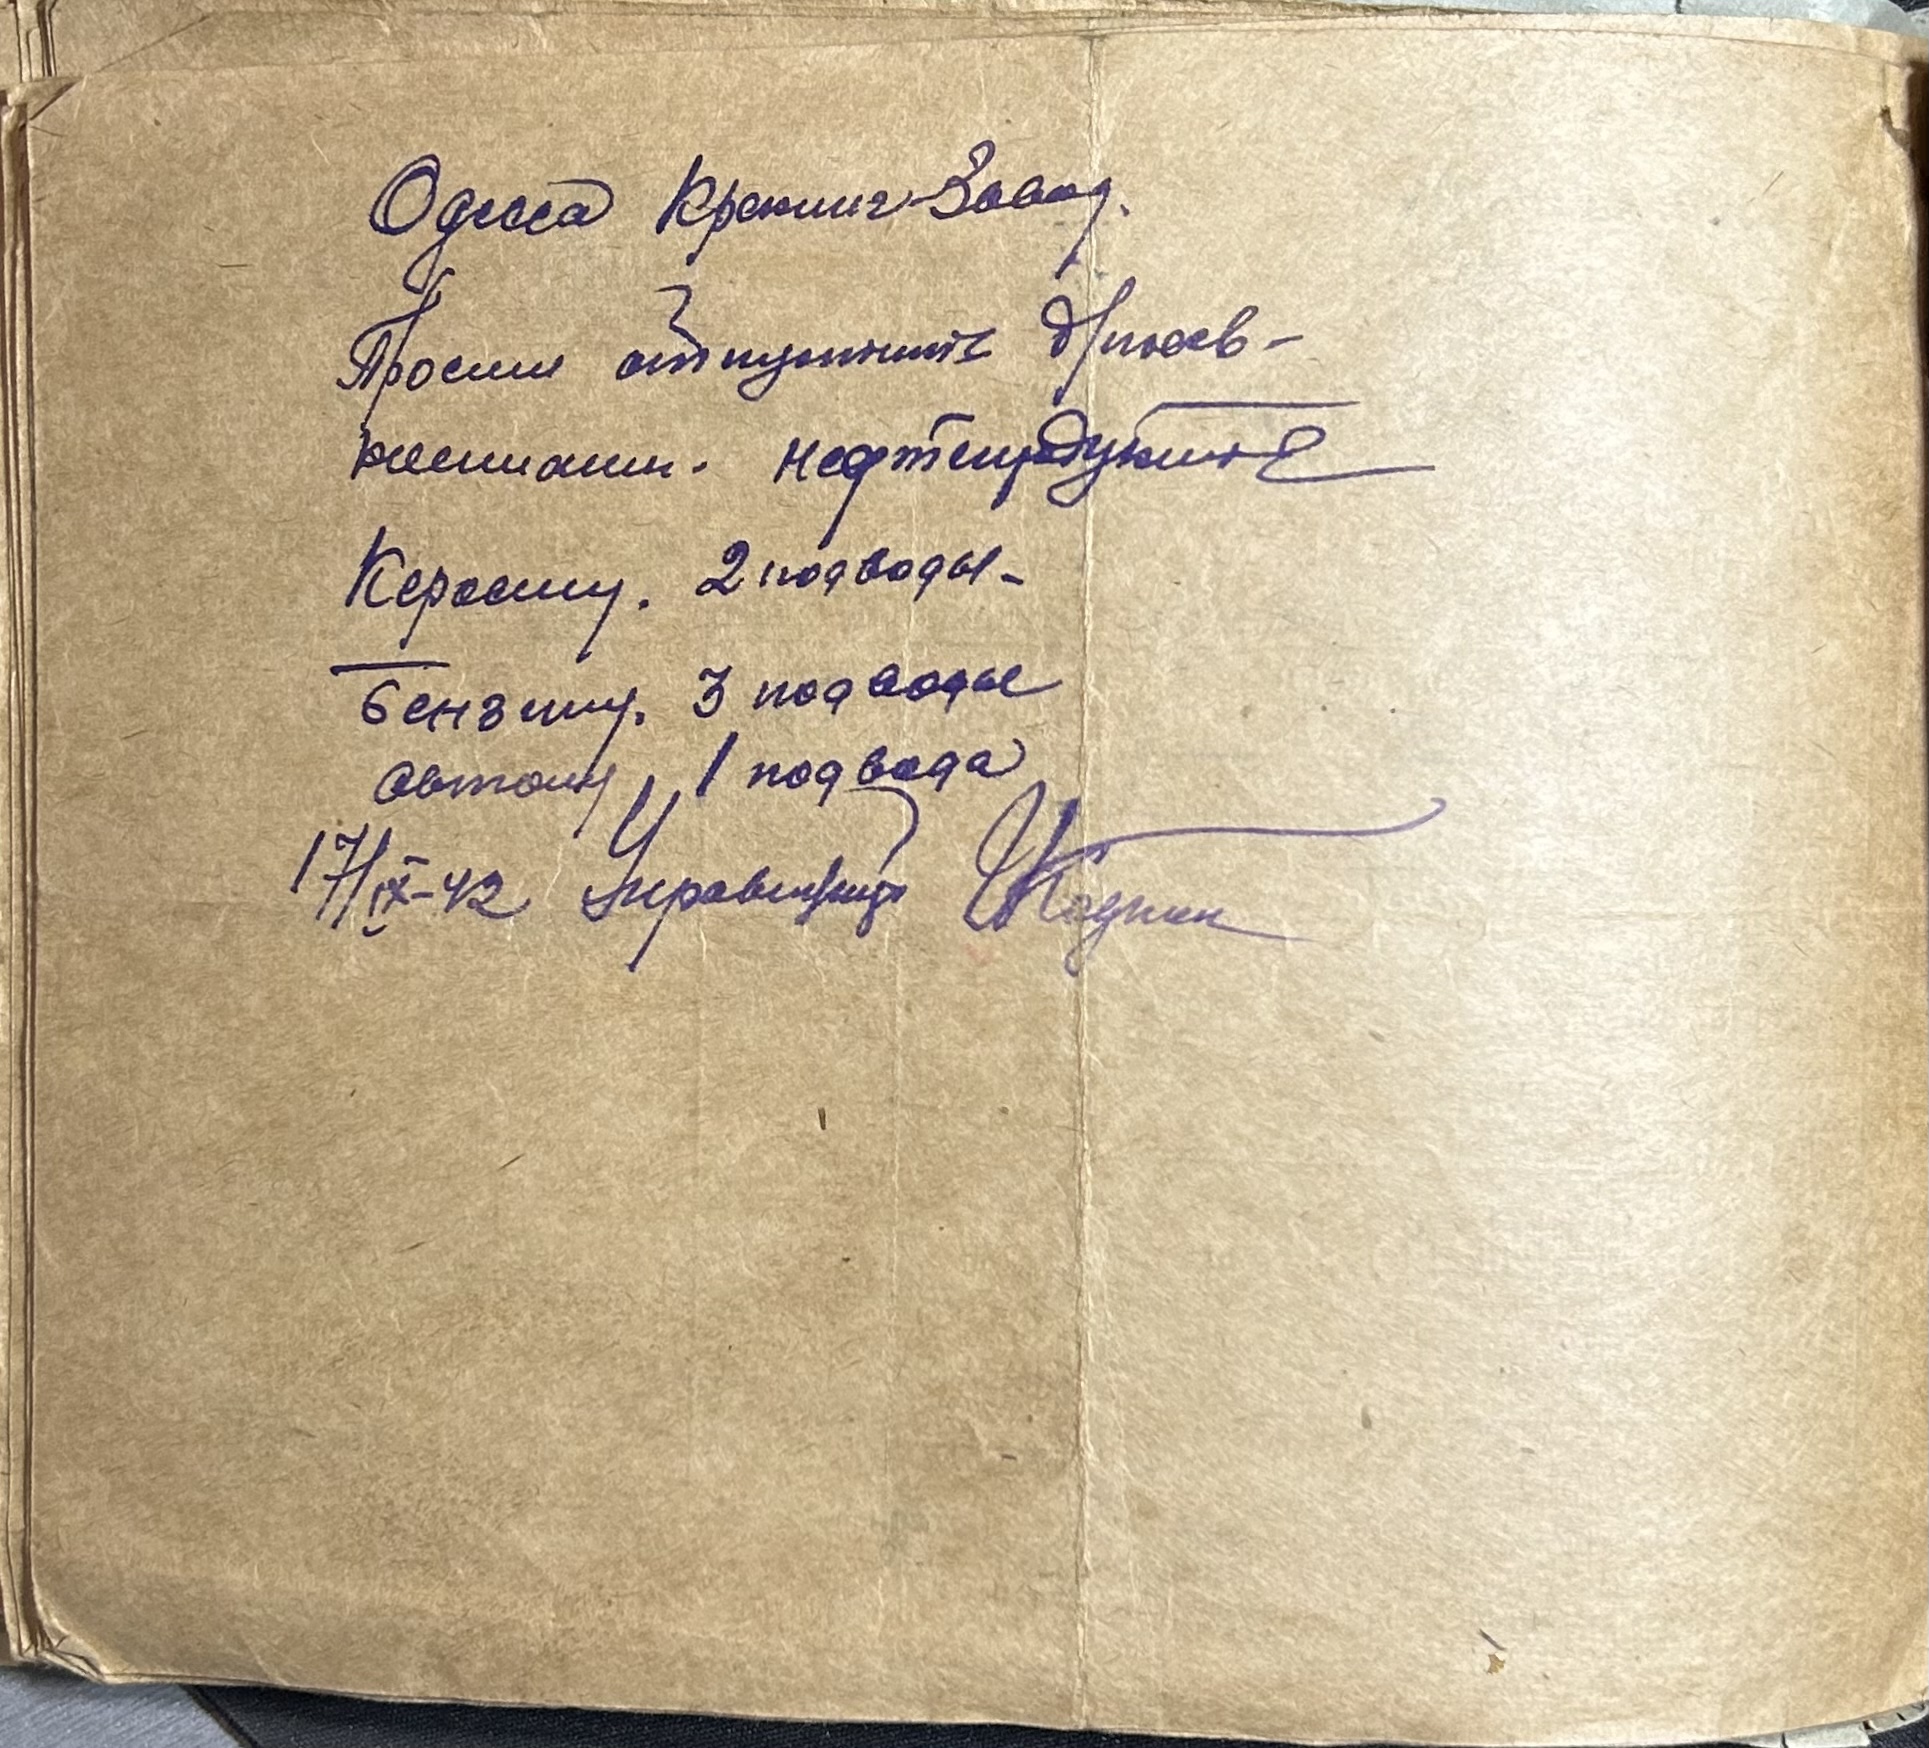 Одесса Крекинг-Завод.
Просим отпустить
нефтепродукты
Керосину. 2 подводы-
Бензину. 3 подводы
автолу 1 подвода
17/IX-42 Управляющий